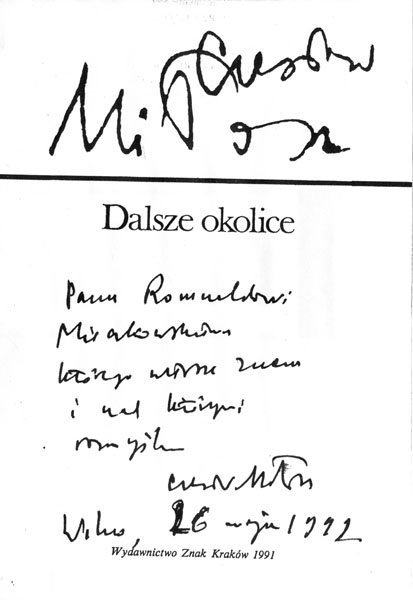 Czesław
Miłosz
Dalsze okolice
Panu Romualdowi
Mieczkowskiemu
którego wiersze znam
i nad którymi
rozmyślam
Czesław Miłosz
Wilno, 26 maja 1992
Wydawnictwo Znak Kraków 1991